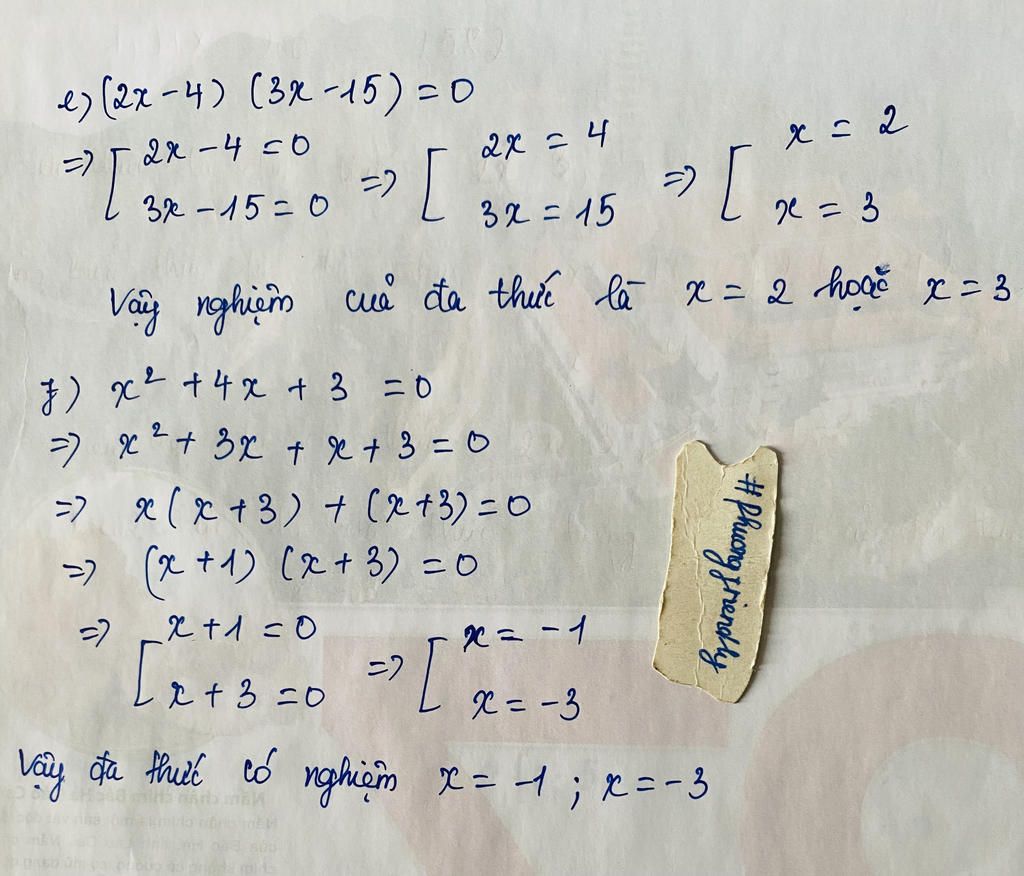 e) (2x - 4) (3x - 15) = 0
=> [ 2x - 4 = 0 => [ 2x = 4 => [ x = 2
3x - 15 = 0 3x = 15 x = 3
Vậy nghiệm của đa thức là x = 2 hoặc x = 3
f) x² + 4x + 3 = 0
=> x² + 3x + x + 3 = 0
=> x(x + 3) + (x + 3) = 0
=> (x + 1) (x + 3) = 0
=> [ x + 1 = 0 => [ x = -1
x + 3 = 0 x = -3
Vậy đa thức có nghiệm x = -1 ; x = -3
#phuongfriendly